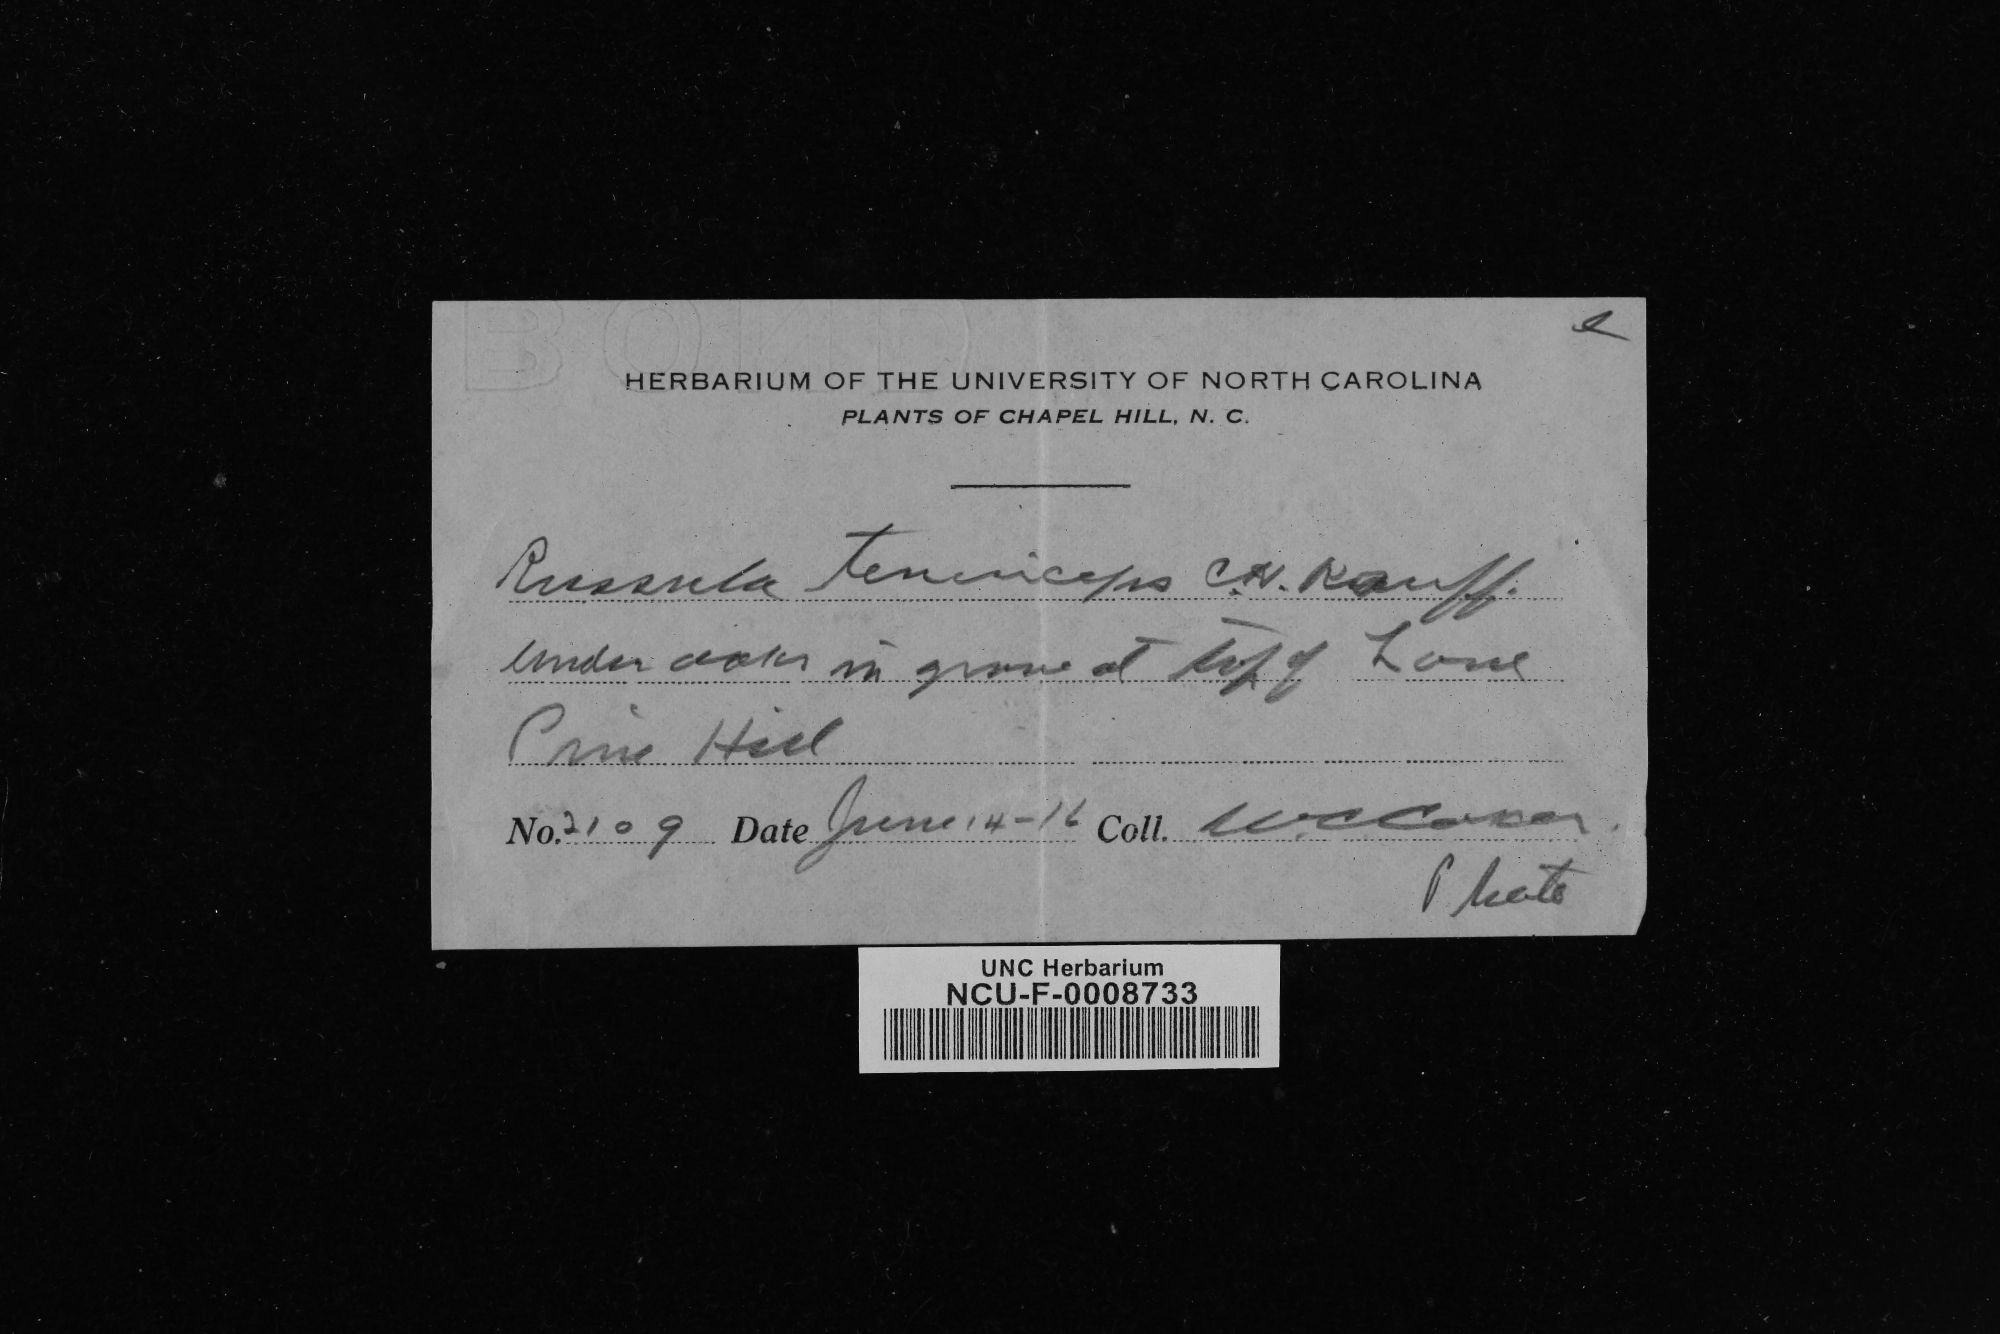 BOND
HERBARIUM OF THE UNIVERSITY OF NORTH CAROLINA
PLANTS OF CHAPEL HILL, N. C.
Russula tenuiceps C.H. Kauff.
Under oaks in grove at top of Lone
Pine Hill
No. 2109 Date June 14-16 Coll. W.C. Coker.
Photo
UNC Herbarium
NCU-F-0008733